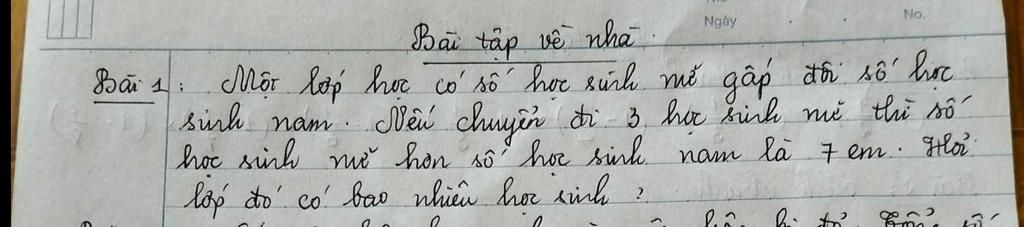 Ngày No.
Bài tập về nhà.
Bài 1: Một lớp học có số học sinh nữ gấp đôi số học
sinh nam. Nếu chuyển đi 3 học sinh nữ thì số
học sinh nữ hơn số học sinh nam là 7 em. Hỏi
lớp đó có bao nhiêu học sinh?